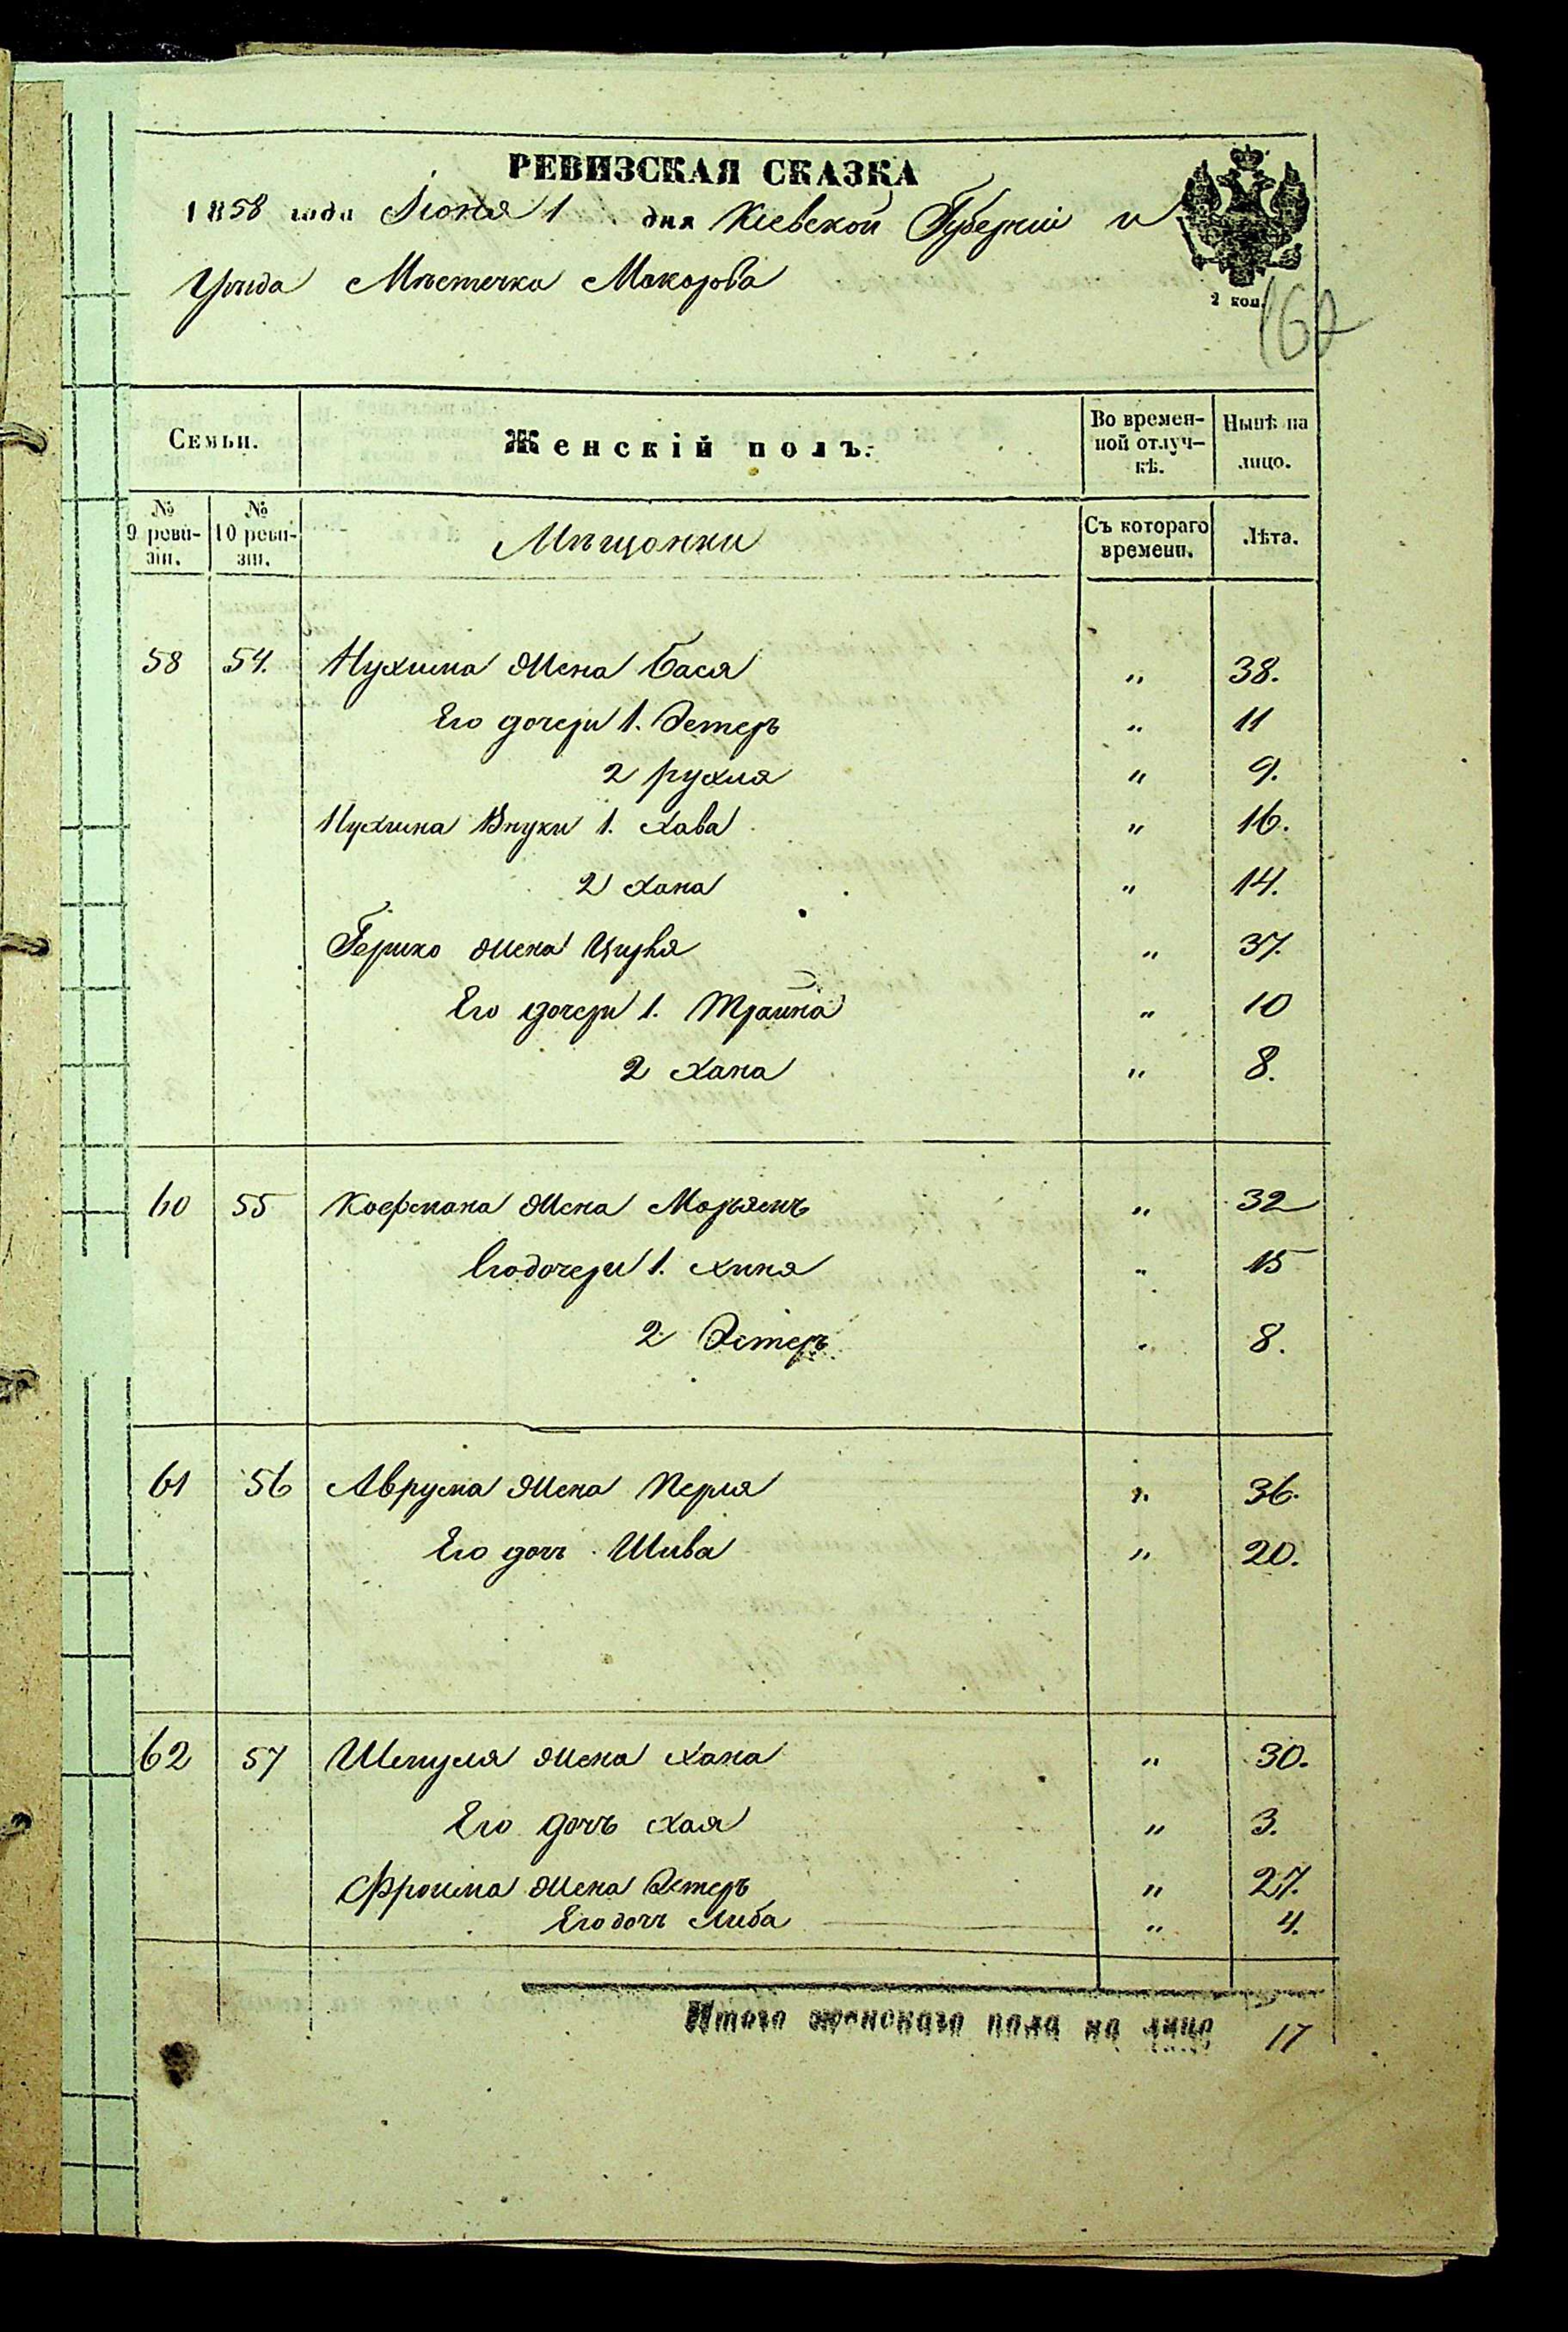 РЕВИЗСКАЯ СКАЗКА
1858 года Іюня 1 дня Кіевской Губерніи и
Уѣзда Мѣстечка Макарова
2 коп.
162
Семьи.
Женскій полъ.
Во времен-
ной отлуч-
кѣ.
Нынѣ на
лицо.
№
9 реви-
зіи.
№
10 реви-
зіи.
Мѣщанки
Съ котораго
времени.
Лѣта.
58 54. Нухима Жена Бася " 38.
Его дочери 1. Эстеръ " 11
2 рухля " 9.
Нухима Внуки 1. Хава " 16.
2 Хана " 14.
Гершко жена Цивья " 37.
Его дочери 1. Трайна " 10
2 Хана " 8.
60 55 Кофмана Жена Марьямъ " 32
Его дочери 1. Хиня " 15
2 Эстеръ " 8.
61 56 Аврума Жена Перля " 36.
Его дочь Шива " 20.
62 57 Шмуля жена Хана " 30.
Его дочь Хая " 3.
Фроима жена Эстеръ " 27.
Его дочь Либа " 4.
Итого женскаго пола на лицо 17